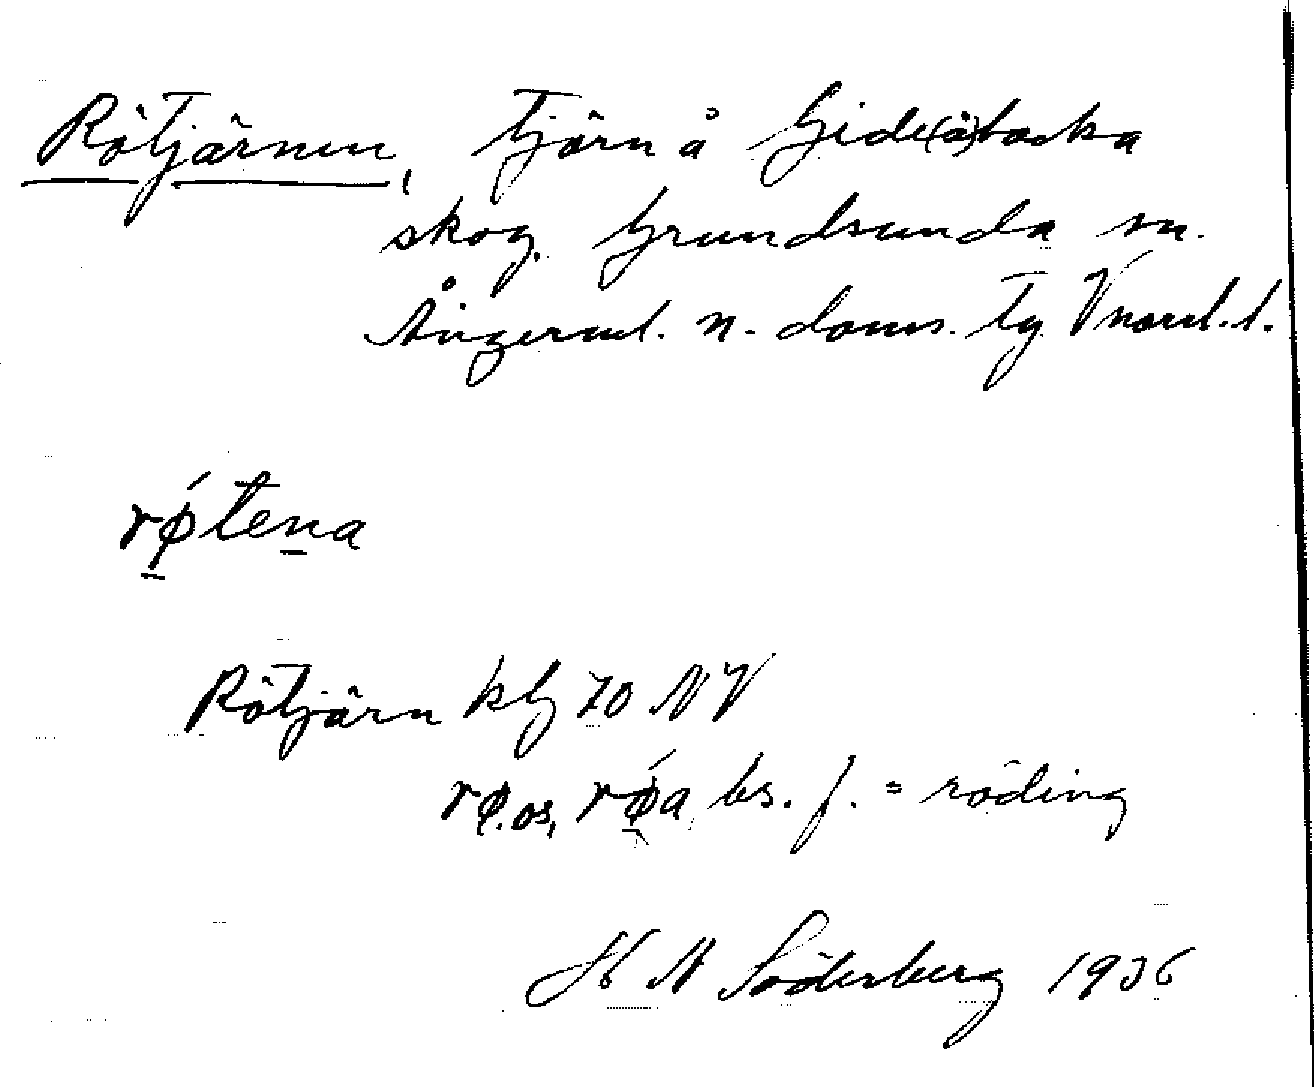 Rötjärnen, tjärn å Gide(å)backa
skog, Grundsunda sn.
Ångerml. n. doms. tg Vnorrl. l.
rǿtena
Rötjärn kbl 70 NV
rø.os, rǿa bs. f. = röding
H N Söderberg 1936